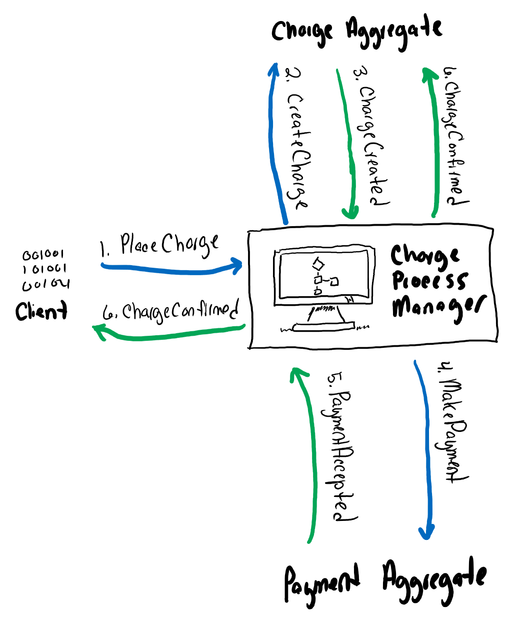 Charge Aggregate
2. CreateCharge
3. ChargeCreated
6. ChargeConfirmed
1. PlaceCharge
001001
101001
Client
6. ChargeConfirmed
Charge
Process
Manager
5. PaymentAccepted
4. MakePayment
Payment Aggregate